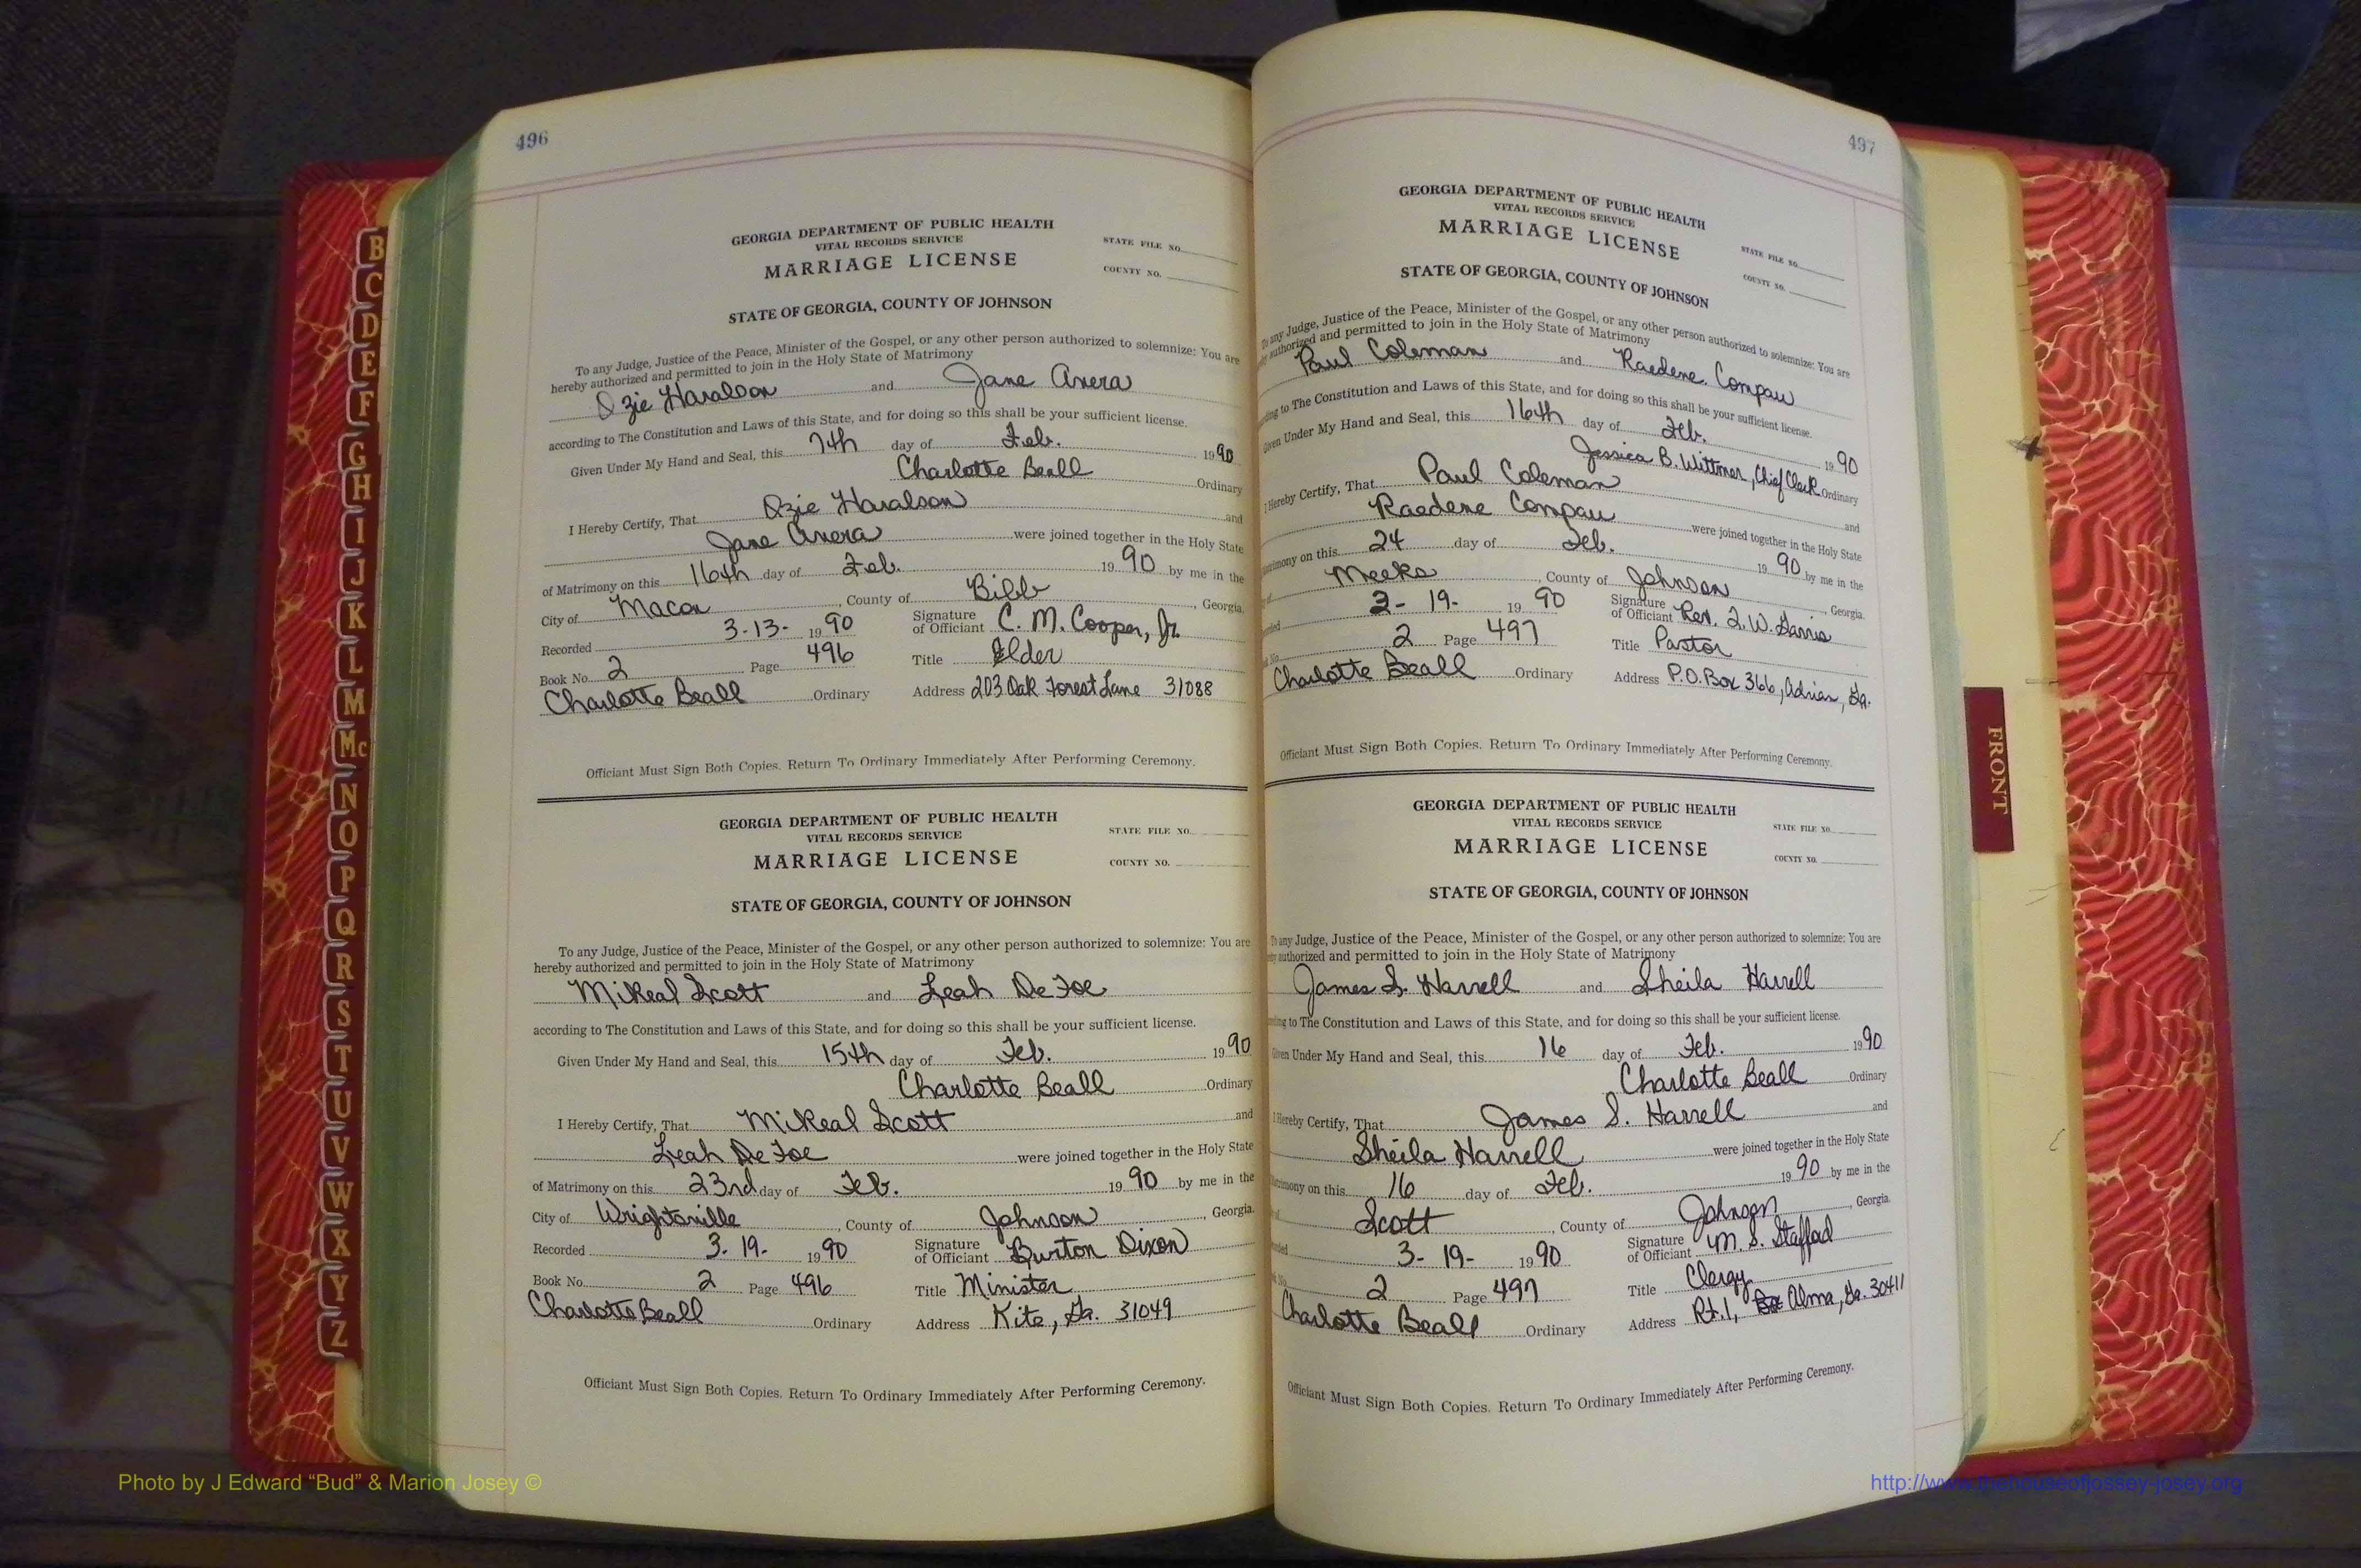 496
GEORGIA DEPARTMENT OF PUBLIC HEALTH
VITAL RECORDS SERVICE
MARRIAGE LICENSE
STATE FILE NO.
COUNTY NO.
STATE OF GEORGIA, COUNTY OF JOHNSON
To any Judge, Justice of the Peace, Minister of the Gospel, or any other person authorized to solemnize: You are
hereby authorized and permitted to join in the Holy State of Matrimony
Ozie Haralson and Jane Avera
according to The Constitution and Laws of this State, and for doing so this shall be your sufficient license.
Given Under My Hand and Seal, this 7th day of Feb. 1990
Charlotte Beall Ordinary
I Hereby Certify, That Ozie Haralson and
Jane Avera were joined together in the Holy State
of Matrimony on this 16th day of Feb. 1990 by me in the
City of Macon, County of Bibb, Georgia.
Recorded 3-13- 1990 Signature of Officiant C. M. Cooper, Jr.
Book No. 2 Page 496 Title Elder
Charlotte Beall Ordinary Address 203 Oak Forest Lane 31088
Officiant Must Sign Both Copies. Return To Ordinary Immediately After Performing Ceremony.
GEORGIA DEPARTMENT OF PUBLIC HEALTH
VITAL RECORDS SERVICE
MARRIAGE LICENSE
STATE FILE NO.
COUNTY NO.
STATE OF GEORGIA, COUNTY OF JOHNSON
To any Judge, Justice of the Peace, Minister of the Gospel, or any other person authorized to solemnize: You are
hereby authorized and permitted to join in the Holy State of Matrimony
Mikeal Scott and Leah DeFoe
according to The Constitution and Laws of this State, and for doing so this shall be your sufficient license.
Given Under My Hand and Seal, this 15th day of Feb. 1990
Charlotte Beall Ordinary
I Hereby Certify, That Mikeal Scott and
Leah DeFoe were joined together in the Holy State
of Matrimony on this 23rd day of Feb. 1990 by me in the
City of Wrightsville, County of Johnson, Georgia.
Recorded 3-19- 1990 Signature of Officiant Burton Dixon
Book No. 2 Page 496 Title Minister
Charlotte Beall Ordinary Address Kite, Ga. 31049
Officiant Must Sign Both Copies. Return To Ordinary Immediately After Performing Ceremony.
497
GEORGIA DEPARTMENT OF PUBLIC HEALTH
VITAL RECORDS SERVICE
MARRIAGE LICENSE
STATE FILE NO.
COUNTY NO.
STATE OF GEORGIA, COUNTY OF JOHNSON
To any Judge, Justice of the Peace, Minister of the Gospel, or any other person authorized to solemnize: You are
authorized and permitted to join in the Holy State of Matrimony
Paul Coleman and Raedene Compau
to The Constitution and Laws of this State, and for doing so this shall be your sufficient license.
Given Under My Hand and Seal, this 16th day of Feb. 1990
Jessica B. Wittmer, Chief Clerk Ordinary
I Hereby Certify, That Paul Coleman and
Raedene Compau were joined together in the Holy State
on this 24 day of Feb. 1990 by me in the
Meeks, County of Johnson, Georgia.
3-19- 1990 Signature of Officiant Rev. Q. W. Harris
2 Page 497 Title Pastor
Charlotte Beall Ordinary Address P.O. Box 366, Adrian, Ga.
Officiant Must Sign Both Copies. Return To Ordinary Immediately After Performing Ceremony.
GEORGIA DEPARTMENT OF PUBLIC HEALTH
VITAL RECORDS SERVICE
MARRIAGE LICENSE
STATE FILE NO.
COUNTY NO.
STATE OF GEORGIA, COUNTY OF JOHNSON
To any Judge, Justice of the Peace, Minister of the Gospel, or any other person authorized to solemnize: You are
authorized and permitted to join in the Holy State of Matrimony
James S. Harrell and Sheila Harrell
to The Constitution and Laws of this State, and for doing so this shall be your sufficient license.
Given Under My Hand and Seal, this 16 day of Feb. 1990
Charlotte Beall Ordinary
I Hereby Certify, That James S. Harrell and
Sheila Harrell were joined together in the Holy State
on this 16 day of Feb. 1990 by me in the
Scott, County of Johnson, Georgia.
3-19- 1990 Signature of Officiant M. S. Stafford
2 Page 497 Title Clergy
Charlotte Beall Ordinary Address Rt.1, Alma, Ga. 30411
Officiant Must Sign Both Copies. Return To Ordinary Immediately After Performing Ceremony.
B
C
D
E
F
G
H
I
J
K
L
M
Mc
N
O
P
Q
R
S
T
U
V
W
X
Y
Z
FRONT
Photo by J Edward “Bud” & Marion Josey ©
http://www.thehouseofjossey-josey.org